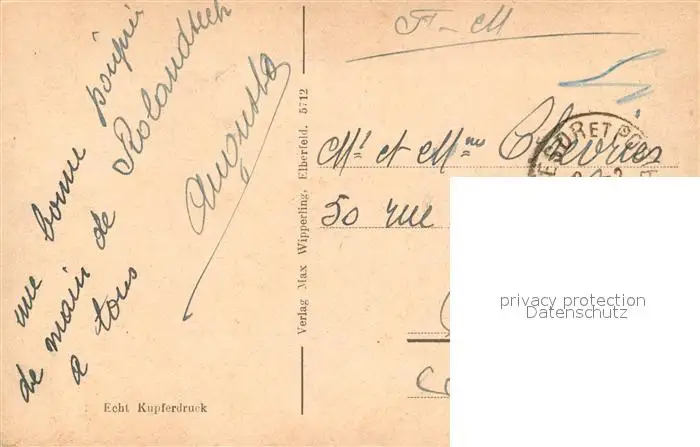 une bonne poignée
de main de Rolandseck
a tous
Augusta
Echt Kupferdruck
Verlag Max Wipperling, Elberfeld. 5712
F - M
Mr et Mme
50 rue
TRESOR ET POSTES
privacy protection
Datenschutz